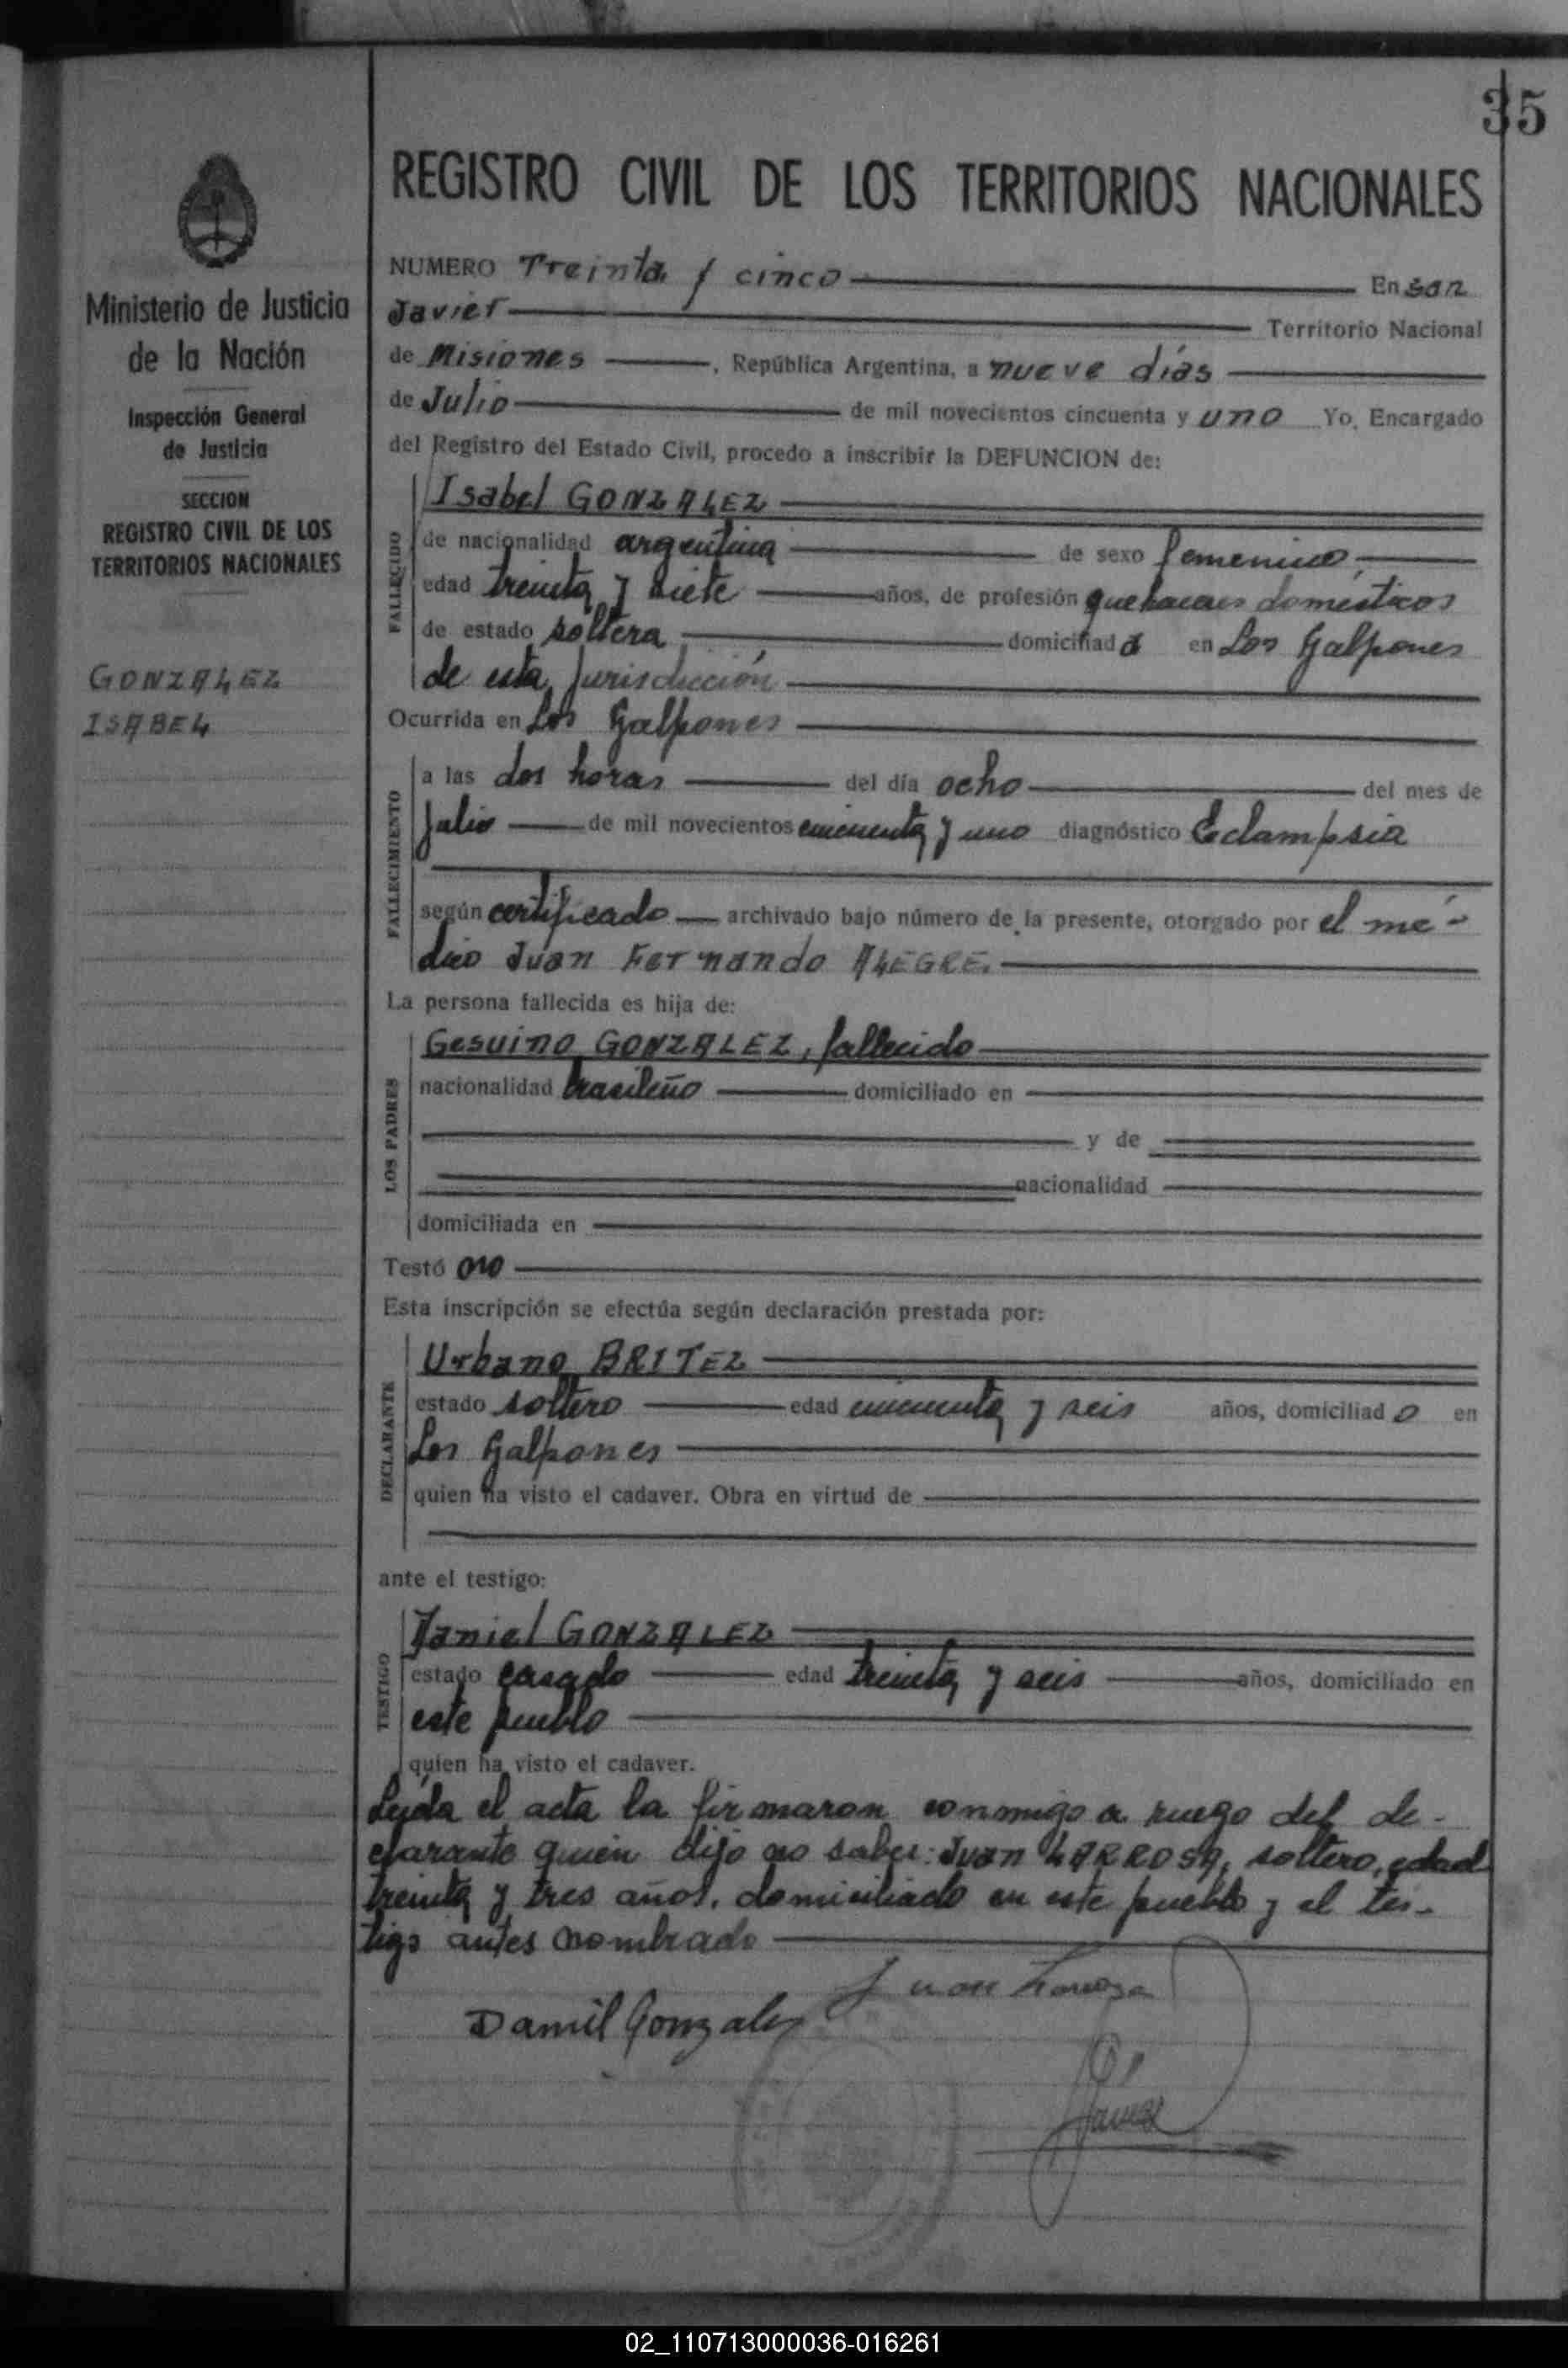 35
REGISTRO CIVIL DE LOS TERRITORIOS NACIONALES
Ministerio de Justicia
de la Nación
Inspección General
de Justicia
SECCION
REGISTRO CIVIL DE LOS
TERRITORIOS NACIONALES
GONZALEZ
ISABEL
NUMERO Treinta y cinco En San
Javier Territorio Nacional
de Misiones , República Argentina, a nueve días
de Julio de mil novecientos cincuenta y uno Yo, Encargado
del Registro del Estado Civil, procedo a inscribir la DEFUNCION de:
FALLECIDO
Isabel GONZALEZ
de nacionalidad argentina de sexo femenino,
edad treinta y siete años, de profesión quehaceres domésticos
de estado soltera, domiciliada en Los Galpones
de esta Jurisdicción
Ocurrida en Los Galpones
FALLECIMIENTO
a las dos horas del día ocho del mes de
Julio de mil novecientos cincuenta y uno diagnóstico Eclampsia
según certificado archivado bajo número de la presente, otorgado por el mé-
dico Juan Fernando ALEGRE.
La persona fallecida es hija de:
LOS PADRES
Gesuino GONZALEZ, fallecido
nacionalidad brasileño domiciliado en
y de
nacionalidad
domiciliada en
Testó no
Esta inscripción se efectúa según declaración prestada por:
DECLARANTE
Urbano BRITEZ
estado soltero edad cincuenta y seis años, domiciliado en
Los Galpones
quien ha visto el cadaver. Obra en virtud de
ante el testigo:
TESTIGO
Daniel GONZALEZ
estado casado edad treinta y seis años, domiciliado en
este pueblo
quien ha visto el cadaver.
Leída el acta la firmaron conmigo a ruego del de-
clarante quien dijo no saber: Juan LARROSA, soltero, edad
treinta y tres años, domiciliado en este pueblo y el tes-
tigo antes nombrado
Juan Larrosa
Daniel Gonzalez
02_110713000036-016261